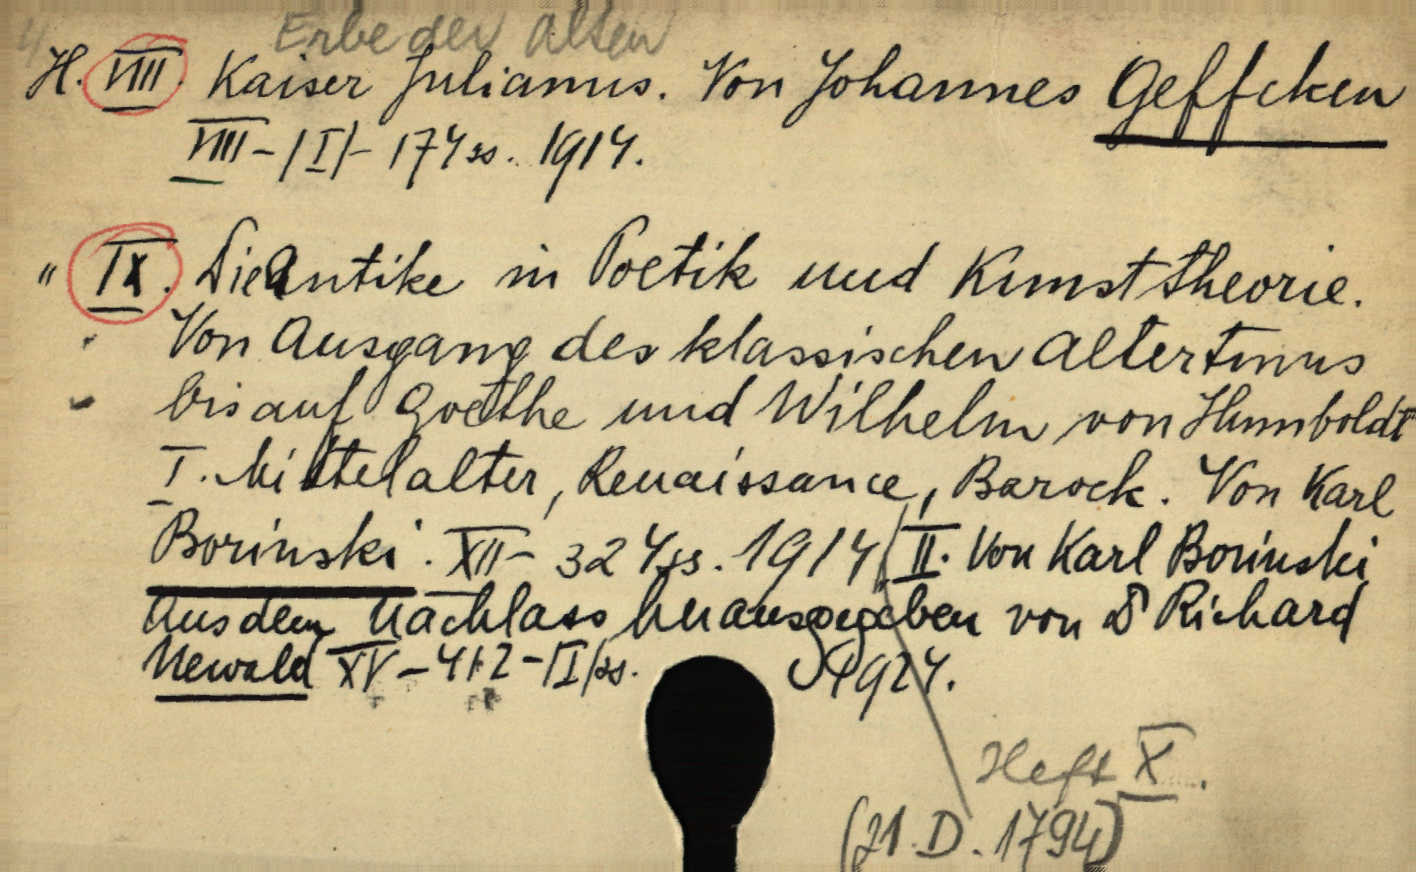 4 Erbe der Alten
H. VIII. Kaiser Julianus. Von Johannes Geffcken
VIII-/I/- 174 ss. 1914.
" IX. Die Antike in Poetik und Kunsttheorie.
Von Ausgang des klassischen Altertums
bis auf Goethe und Wilhelm von Humboldt
I. Mittelalter, Renaissance, Barock. Von Karl
Borinski. XII- 324 ss. 1914/ II. Von Karl Borinski
Aus dem Nachlass herausgegeben von D Richard
Newald XV-412-/I/ss. 1924.
Heft X.
(21.D.1794)